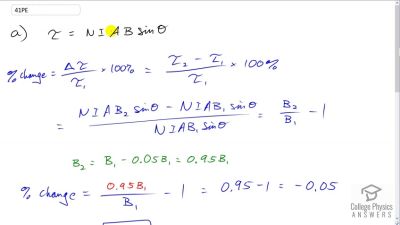 41PE
a) τ = NIAB sinθ
% change = Δτ/τ₁ × 100% = (τ₂ - τ₁)/τ₁ × 100%
= (NIAB₂ sinθ - NIAB₁ sinθ)/(NIAB₁ sinθ) = B₂/B₁ - 1
B₂ = B₁ - 0.05B₁ = 0.95B₁
% change = 0.95B₁/B₁ - 1 = 0.95 - 1 = -0.05
College Physics
ANSWERS